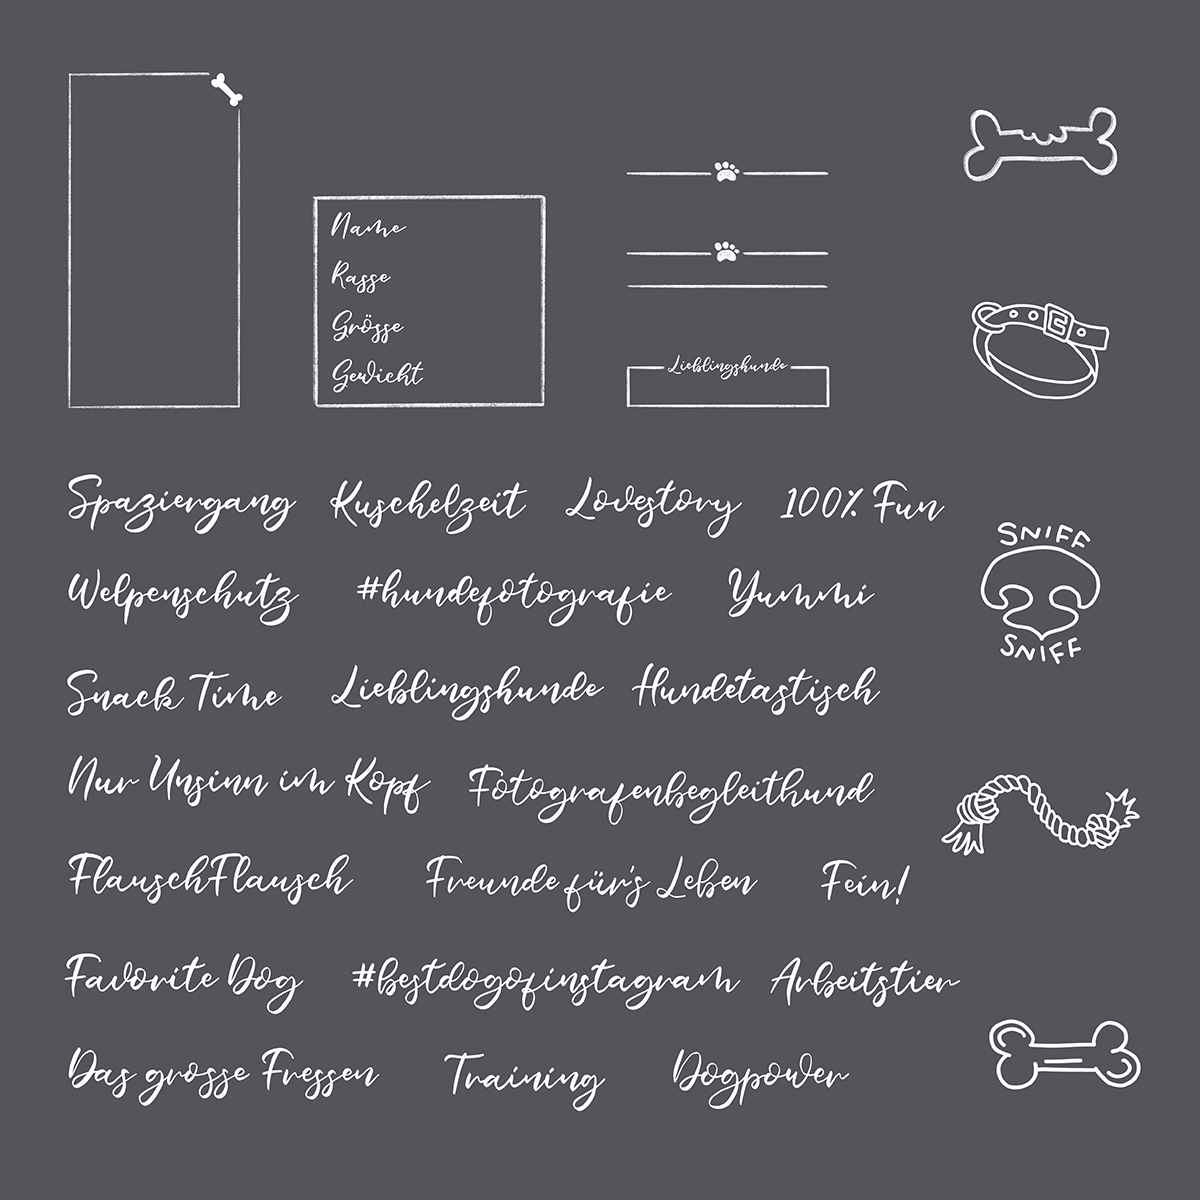 Name
Rasse
Grösse
Gewicht
Lieblingshunde
Spaziergang Kuschelzeit Lovestory 100% Fun
SNIFF
Welpenschutz #hundefotografie Yummi
SNIFF
Snack Time Lieblingshunde Hundetastisch
Nur Unsinn im Kopf Fotografenbegleithund
FlauschFlausch Freunde für's Leben Fein!
Favorite Dog #bestdogofinstagram Arbeitstier
Das grosse Fressen Training Dogpower